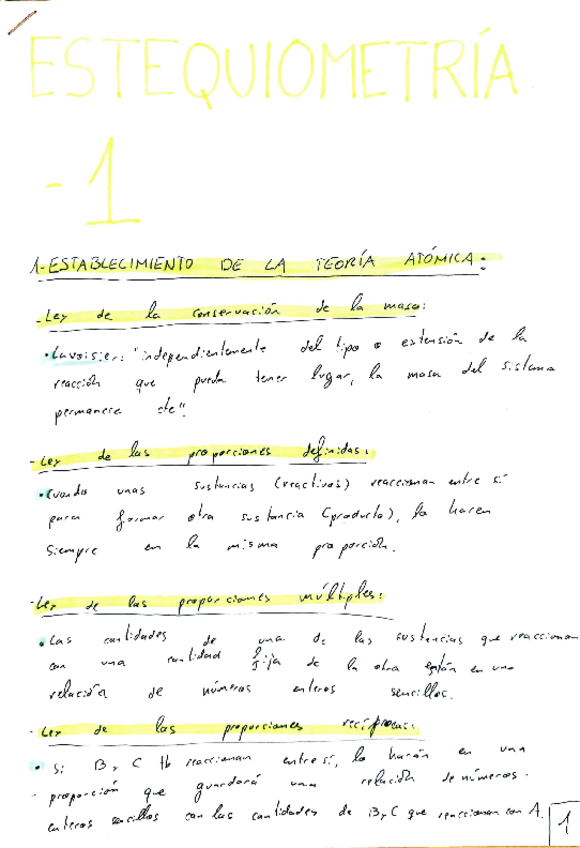 ESTEQUIOMETRÍA
-1
1-ESTABLECIMIENTO DE LA TEORÍA ATÓMICA:
-Ley de la conservación de la masa:
•Lavoisier: "independientemente del tipo o extensión de la
reacción que pueda tener lugar, la masa del sistema
permanece cte".
-Ley de las proporciones definidas:
•Cuando unas sustancias (reactivos) reaccionan entre sí
para formar otra sustancia (producto), lo hacen
siempre en la misma proporción.
-Ley de las proporciones múltiples:
•Las cantidades de una de las sustancias que reaccionan
con una cantidad fija de la otra están en una
relación de números enteros sencillos.
-Ley de las proporciones recíprocas:
•Si B y C tb reaccionan entre sí, lo harán en una
proporción que guardará una relación de números
enteros sencillos con las cantidades de B y C que reaccionan con A.
1